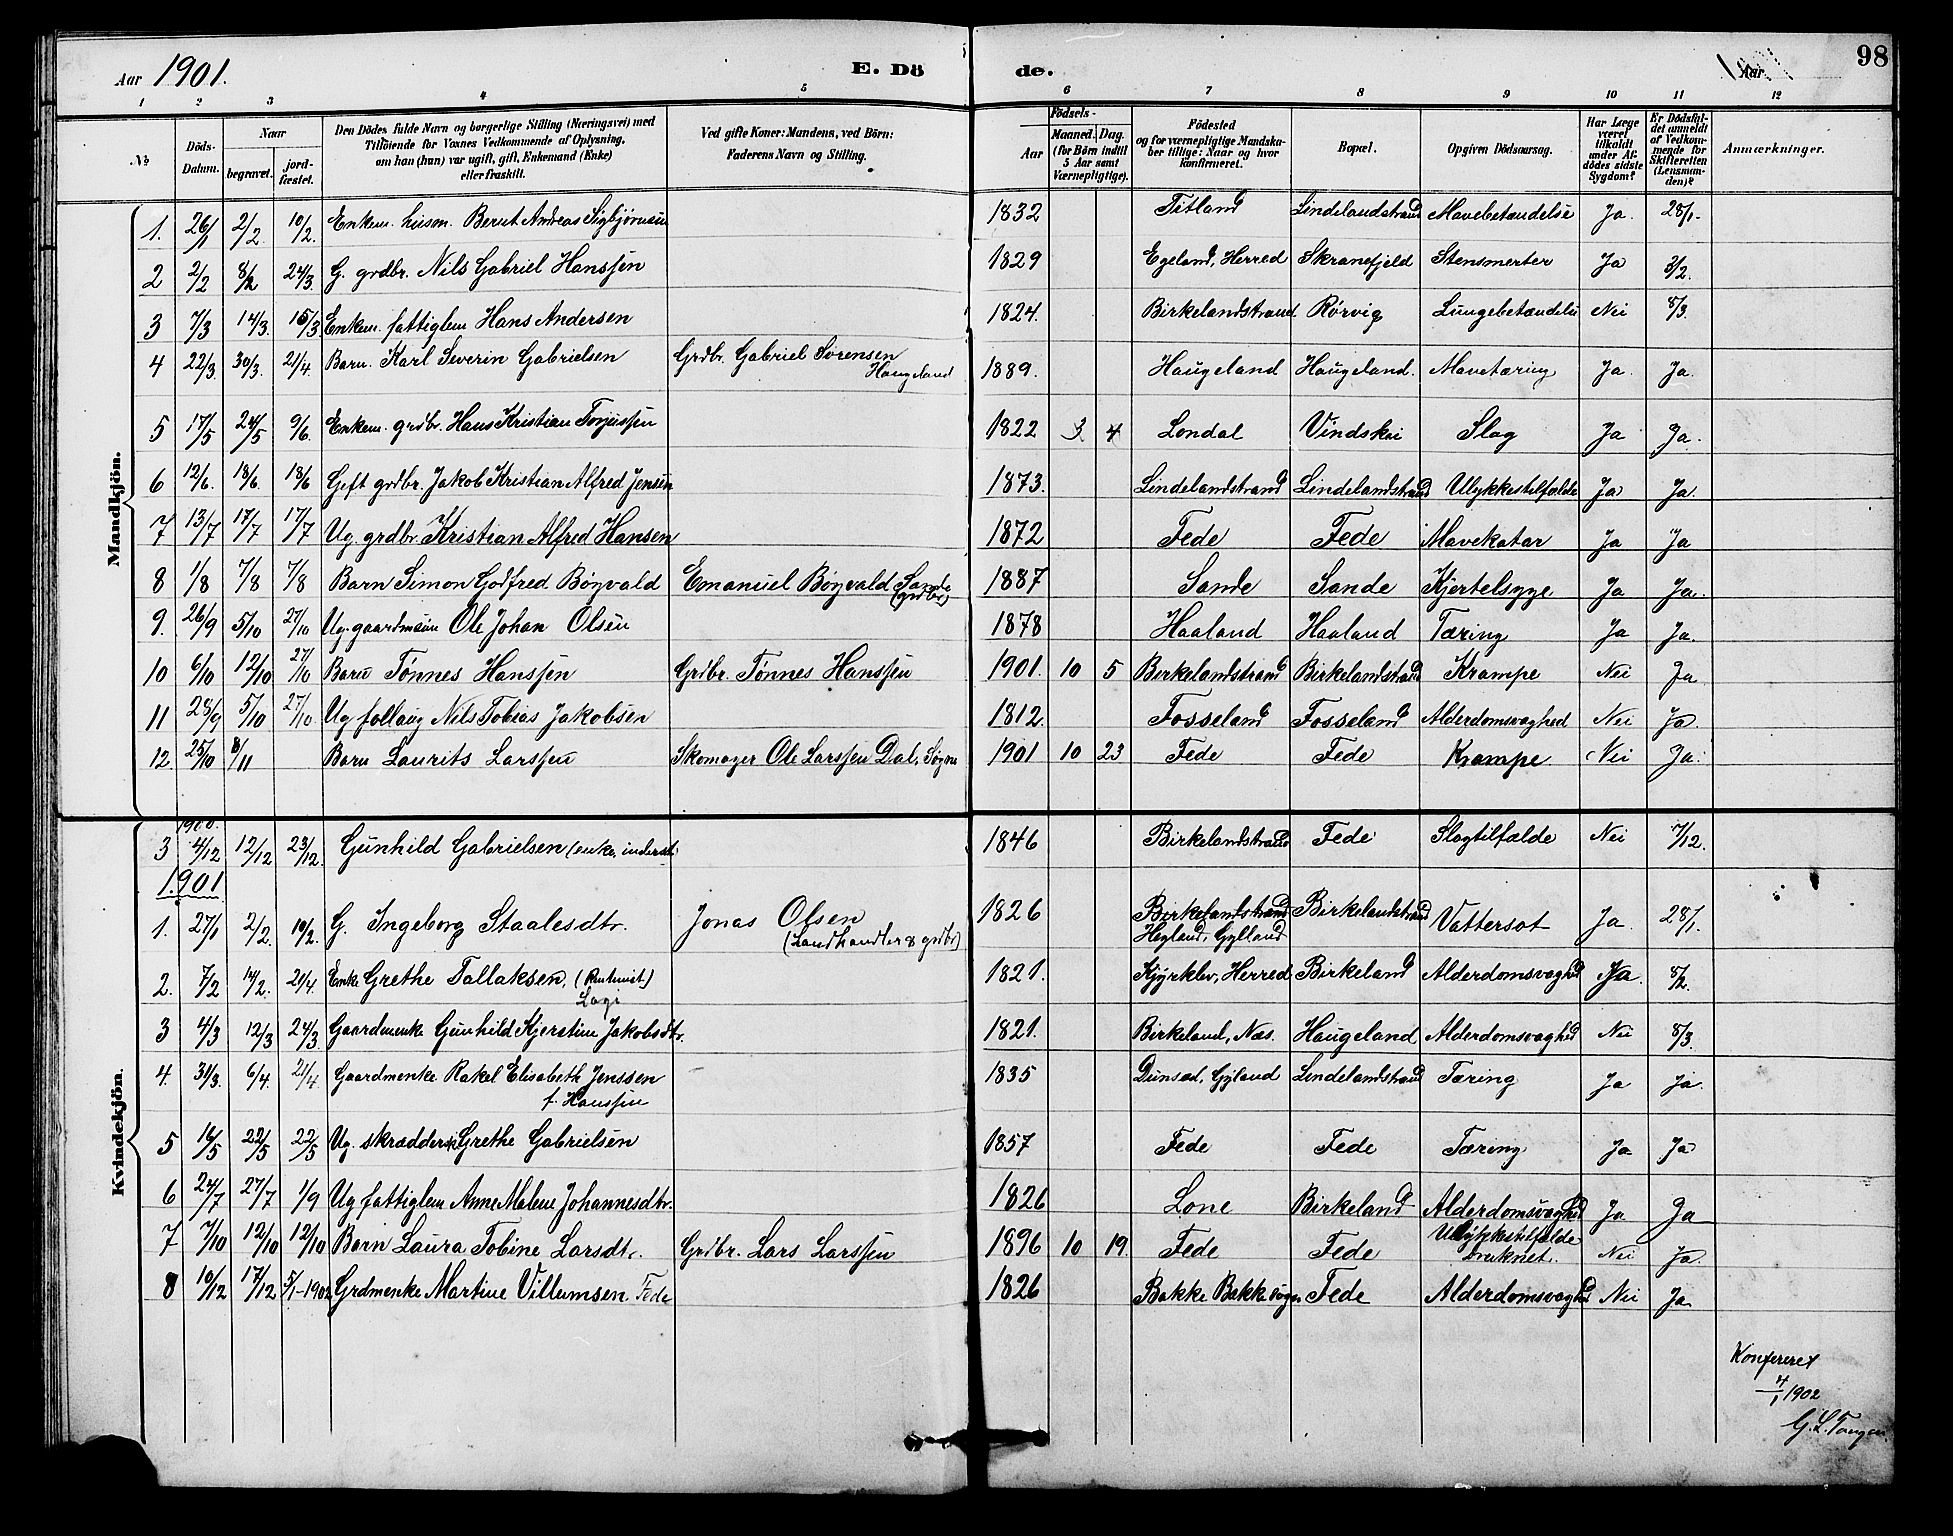 Aar 1901. E. Dö de. Aar 98
1 2 3 4 5 6 7 8 9 10 11 12
No Döds-Datum. Naar begravet. jordfæstet. Den Dödes fulde Navn og borgerlige Stilling (Næringsvei) med Tilföiende for Voxnes Vedkommende af Oplysning, om han (hun) var ugift, gift, Enkemand (Enke) eller fraskilt. Ved gifte Koner: Mandens, ved Börn: Faderens Navn og Stilling. Födsels- Aar Maaned. Dag. (for Börn indtil 5 Aar samt Værnepligtige). Födested og for værnepligtige Mandskaber tillige: Naar og hvor konfirmeret. Bopæl. Opgiven Dödsaarsag. Har Læge været tilkaldt under Afdödes sidste Sygdom? Er Dödsfaldet anmeldt af Vedkommende for Skifteretten (Lensmanden)? Anmærkninger.
Mandkjön.
1. 26/1 2/2 10/2. Enkem. husm. Bernt Andreas Sigbjørnsen 1832 Titland Lindelandstrand Mavebetændelse Ja. 28/1.
2 2/2 8/2 24/3. G. grdbr. Nils Gabriel Hanssen 1829 Egeland, Herred Skranefjeld Stensmerter Ja 3/2.
3 7/3 14/3. 15/3 Enkem. fattiglem Hans Andersen 1824. Birkelandstrand Rørvig Lungebetændelse Nei 8/3.
4 22/3. 30/3. 21/4. Barn. Karl Severin Gabrielsen Grdbr. Gabriel Sørensen Haugeland 1889. Haugeland Haugeland. Mavetæring Ja. Ja.
5 17/5 24/5 9/6. Enkem. grdbr. Hans Kristian Torjussen 1822 3 4 Londal Slag Ja Ja.
6 12/6. 18/6. 18/6 Gift grdbr. Jakob Kristian Alfred Jensen 1873. Lindelandstrand Lindelandstrand Ulykkestilfælde Ja Ja.
7 13/7 17/7 17/7 Ug. grdbr. Kristian Alfred Hansen 1872 Fede Fede Mavekatar Ja Ja
8 1/8 7/8 7/8 Barn Simon Godfred Bøgvald Emanuel Bøgvald Sande (grdbr) 1887 Sande Sande Kjertelsyge Ja Ja.
9. 26/9 5/10 27/10 Ug. gaardmam Ole Johan Olsen 1878 Haaland Haaland Tæring Ja Ja.
10 6/10 12/10 27/10 Barn Tønnes Hanssen Grdbr. Tønnes Hanssen 1901. 10 5 Birkelandstrand Birkelandstrand Krampe Nei Ja
11 28/9 5/10 27/10 Ug. follaug Nils Tobias Jakobsen 1812. Fosseland Fosseland Alderdomsvaghed Nei Ja.
12. 25/10 8/11 Barn Laurits Larssen Skomager Ole Larssen Dal, Søgne 1901 10 23 Fede Fede Krampe Nei Ja.
Kvindekjön.
1900.
3 4/12 12/12 23/12. Gunhild Gabrielsen (enke, inderst) 1846 Birkelandstrand Fede Slagtilfælde Nei 7/12.
1901
1. 27/1 2/2. 10/2. G. Ingeborg Staalesdtr. Jonas Olsen (Landhandler & grdbr) 1826 Birkelandstrand Hegland, Gylland Birkelandstrand Vattersot Ja. 28/1.
2. 7/2 14/2. 21/4. Enke Grethe Tallaksen, (Rentenist) 1821. Herred Birkeland Alderdomsvaghed Ja. 8/2.
3 4/3 12/3 24/3. Gaardmenke Gunhild Kjerstine Jakobsdtr. 1821. Birkeland, Næs. Haugeland Alderdomsvaghed Nei 8/3.
4. 31/3. 6/4. 21/4. Gaardmenke Rakel Elisabeth Jenssen f. Hanssen 1835 Dunsæd, Gyland Lindelandstrand Tæring Ja Ja.
5 16/5 22/5 22/5 Ug. skrædder Grethe Gabrielsen 1857 Fede Fede Tæring Ja Ja
6 24/7 27/7 1/9 Ug fattiglem Anne Malene Johannesdtr. 1826 Lone Birkeland Alderdomsvaghed Ja Ja
7 7/10 12/10 12/10 Barn Laura Tobine Larsdtr. Grdbr. Lars Larssen 1896 10 19 Fede Fede Ulykkestilfælde druknet. Nei Ja.
8 10/12 17/12 5/1-1902 Grdmenke Martine Villumsen. Fede 1826 Bakke Bakke sogn Fede Alderdomsvaghed Nei Ja
Konfereret
4/1 1902
G. L. Tangen